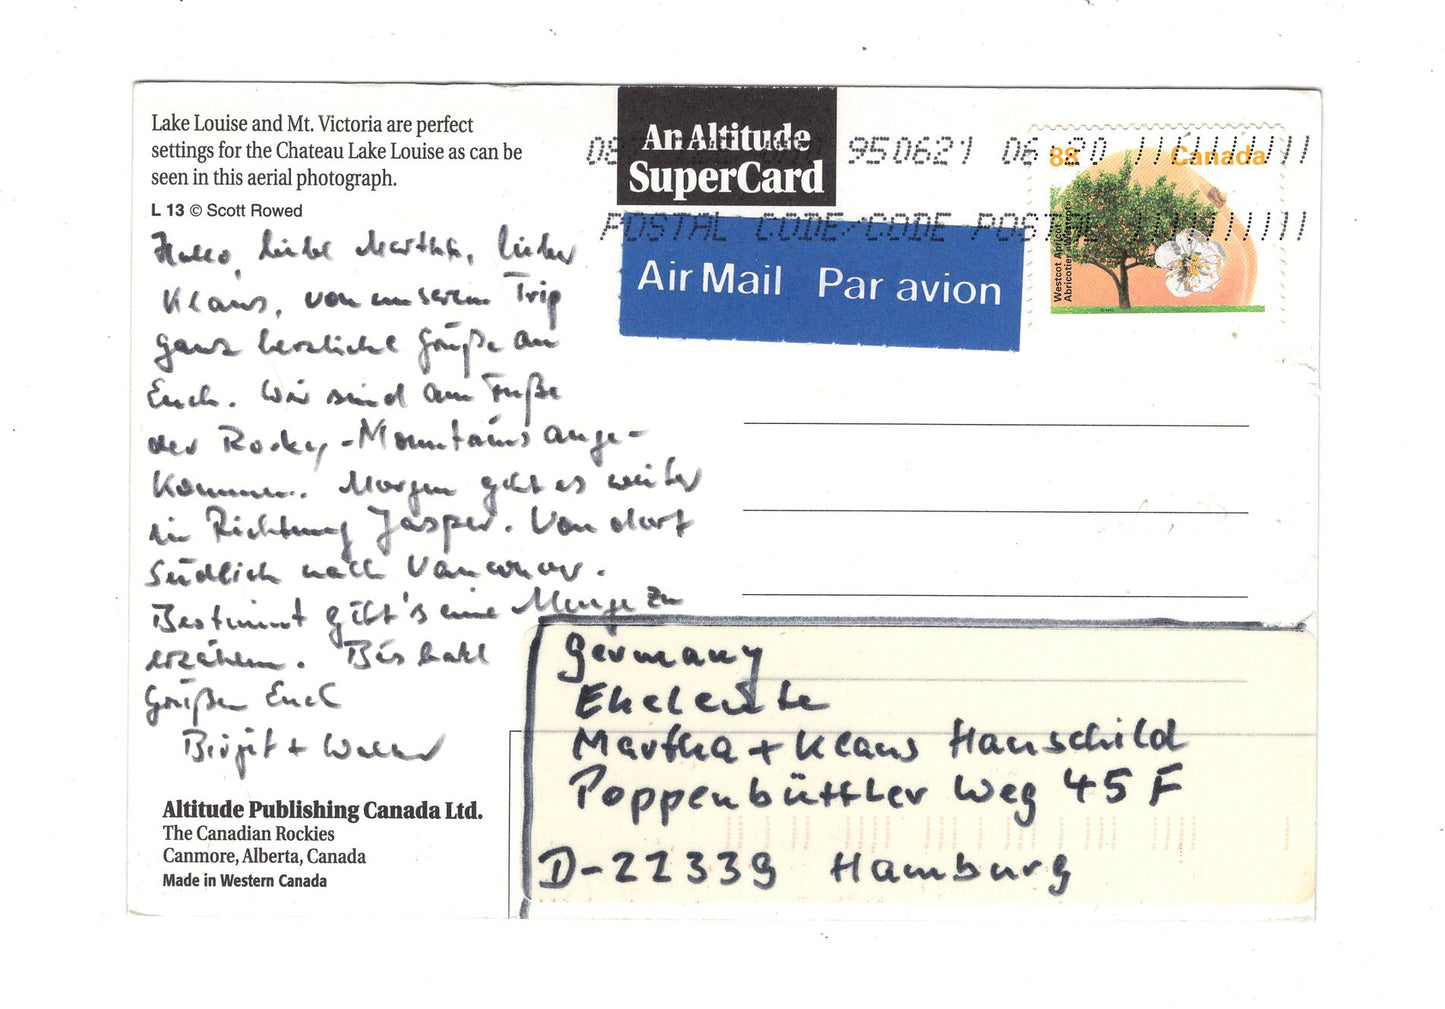 Lake Louise and Mt. Victoria are perfect
settings for the Chateau Lake Louise as can be
seen in this aerial photograph.
L 13 © Scott Rowed
An Altitude
SuperCard
950621 06 20
POSTAL CODE/CODE POSTAL
88 Canada
Westcot Apricot
Abricotier
Air Mail Par avion
Hallo, liebe Martha, lieber
Klaus, von unserem Trip
ganz herzliche Grüße an
Euch. Wir sind am Fuße
der Rocky-Mountains ange-
kommen. Morgen geht es weiter
in Richtung Jasper. Von dort
südlich nach Vancouver.
Bestimmt gibt's eine Menge zu
erzählen. Bis bald
Grüßen Euch
Birgit +
Germany
Eheleute
Martha + Klaus Hanschild
Poppenbüttler Weg 45 F
D-22339 Hamburg
Altitude Publishing Canada Ltd.
The Canadian Rockies
Canmore, Alberta, Canada
Made in Western Canada